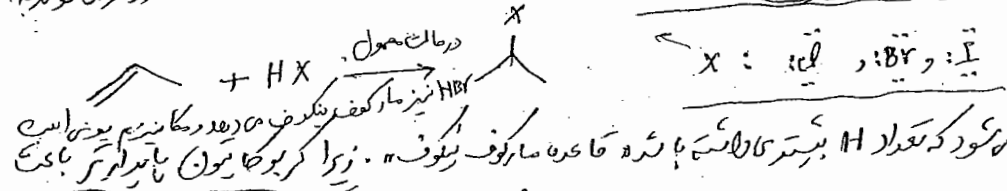 در حالت معمول
+ HX
X
X : :C̈l , :B̈r , :Ï
HBr نیز مارکوف نیکوف می دهد و مکانیزم یونی است
می شود که تعداد H بیشتری داشته باشد « قاعده مارکوف نیکوف » . زیرا کربوکاتیون پایدارتر باعث